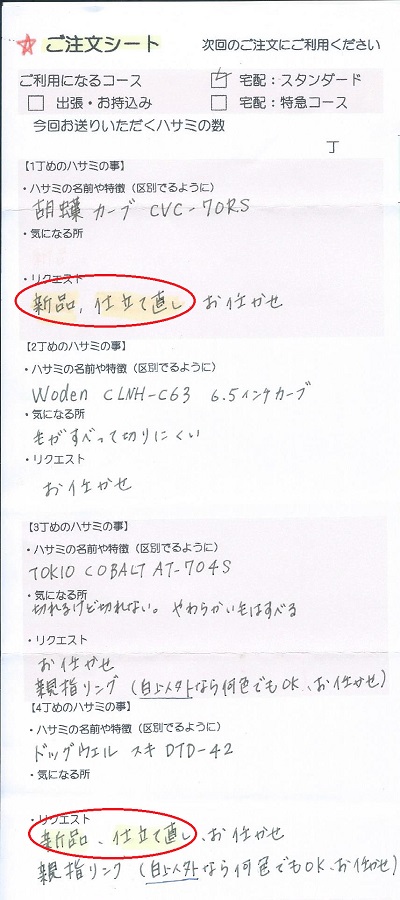 ☆ ご注文シート 次回のご注文にご利用ください
ご利用になるコース □ 宅配:スタンダード
□ 出張・お持込み □ 宅配:特急コース
今回お送りいただくハサミの数
丁
【1丁めのハサミの事】
・ハサミの名前や特徴(区別でるように)
胡蝶 カーブ CVC-70RS
・気になる所
・リクエスト
新品、仕立て直し お任かせ
【2丁めのハサミの事】
・ハサミの名前や特徴(区別でるように)
Woden CLNH-C63 6.5インチカーブ
・気になる所
毛がすべって切りにくい
・リクエスト
お任かせ
【3丁めのハサミの事】
・ハサミの名前や特徴(区別でるように)
TOKIO COBALT AT-704S
・気になる所
切れるけど切れない。 やわらかい毛はすべる
・リクエスト
お任かせ
親指リング (白以外なら何色でもOK、お任せ)
【4丁めのハサミの事】
・ハサミの名前や特徴(区別でるように)
ドッグウェル スキ DTD-42
・気になる所
・リクエスト
新品、仕立て直し、お任かせ
親指リング (白以外なら何色でもOK、お任かせ)